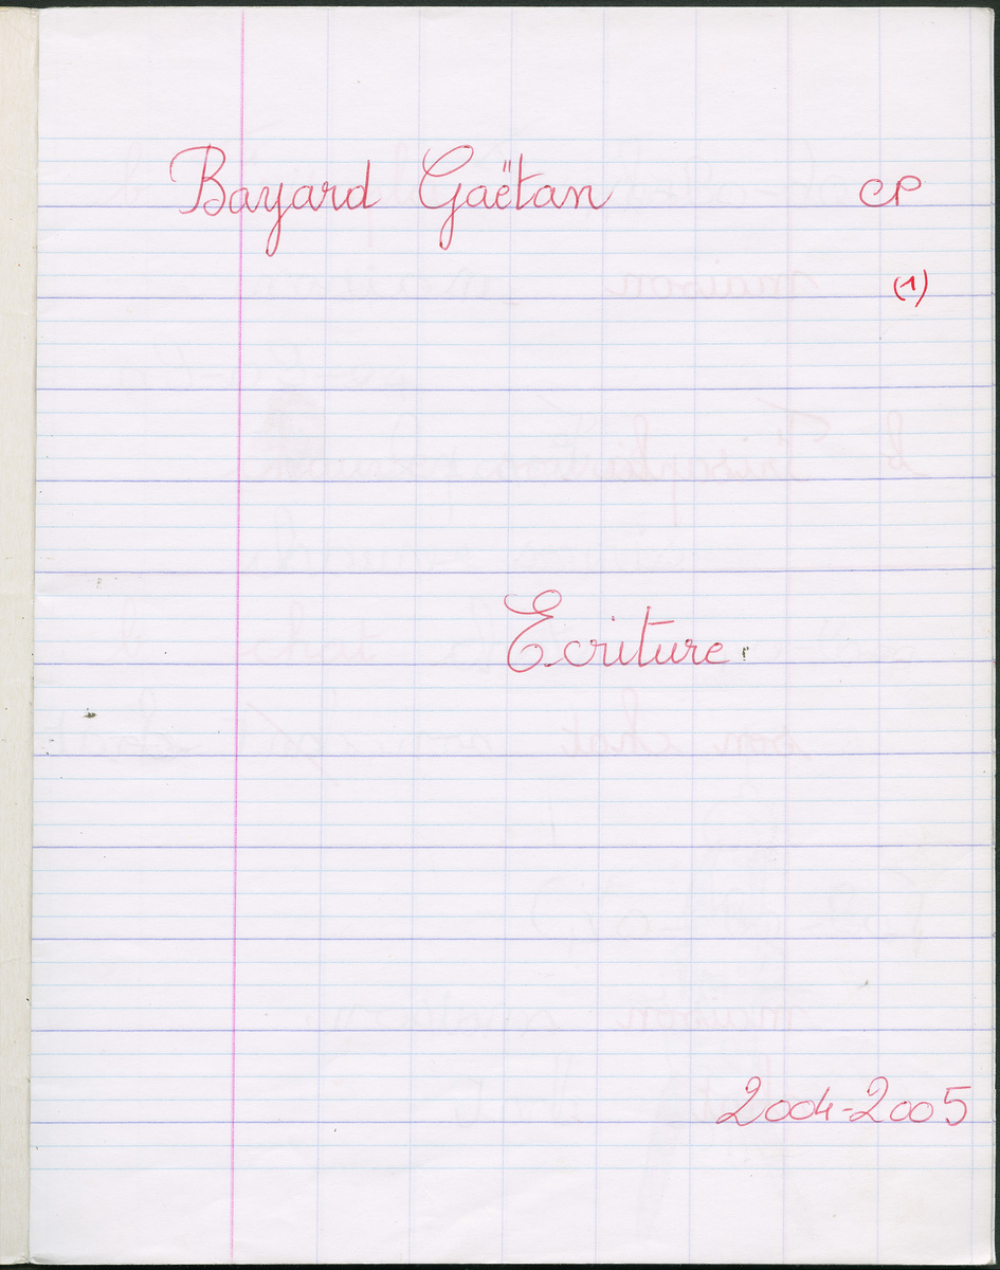 Bayard Gaëtan CP
(1)
Ecriture.
2004-2005